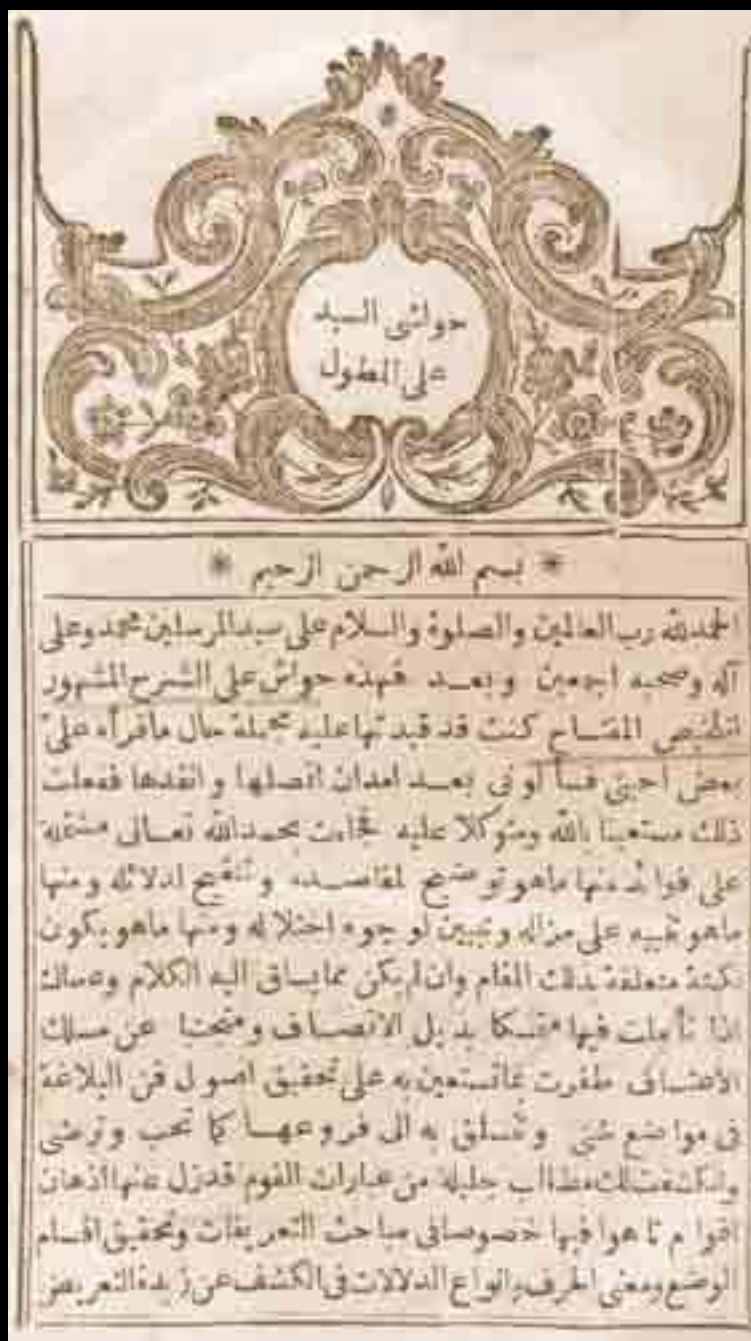 حواشى السيد
على المطول
* بسم الله الرحمن الرحيم *
الحمدلله رب العالمين والصلوة والسلام على سيد المرسلين محمد وعلى
آله وصحبه اجمعين وبعد فهذه حواش على الشرح المشهور
لتلخيص المفتاح كنت قد قيدتها عليه مجملة حال ماقرأه على
بعض احبتى فسألونى بعد امدان افصلها وانقدها ففعلت
ذلك مستعينا بالله ومتوكلا عليه فجاءت بحمدالله تعالى مشتملة
على فوائد منها ماهو توضيح لمقاصده وتنقيح لدلائله ومنها
ماهو تنبيه على مزاله وتبيين لوجوه اختلاله ومنها ماهو يكون
نكتة متعلقة بذلك المقام وان لم يكن مما يساق اليه الكلام وعساك
اذا تأملت فيها متمسكا بذيل الانصاف ومتجنبا عن مسلك
الاعتساف ظفرت بماتستعين به على تحقيق اصول فن البلاغة
فى مواضع شتى وتتسلق به الى فروعها كما تحب وترضى
مطالب جليلة من عبارات القوم قدزل عنها اذهان
اقوام تاهوا فيها خصوصا فى مباحث التعريفات وتحقيق اقسام
الوضع ومعنى الحرف وانواع الدلالات فى الكشف عن زبدة التعريض